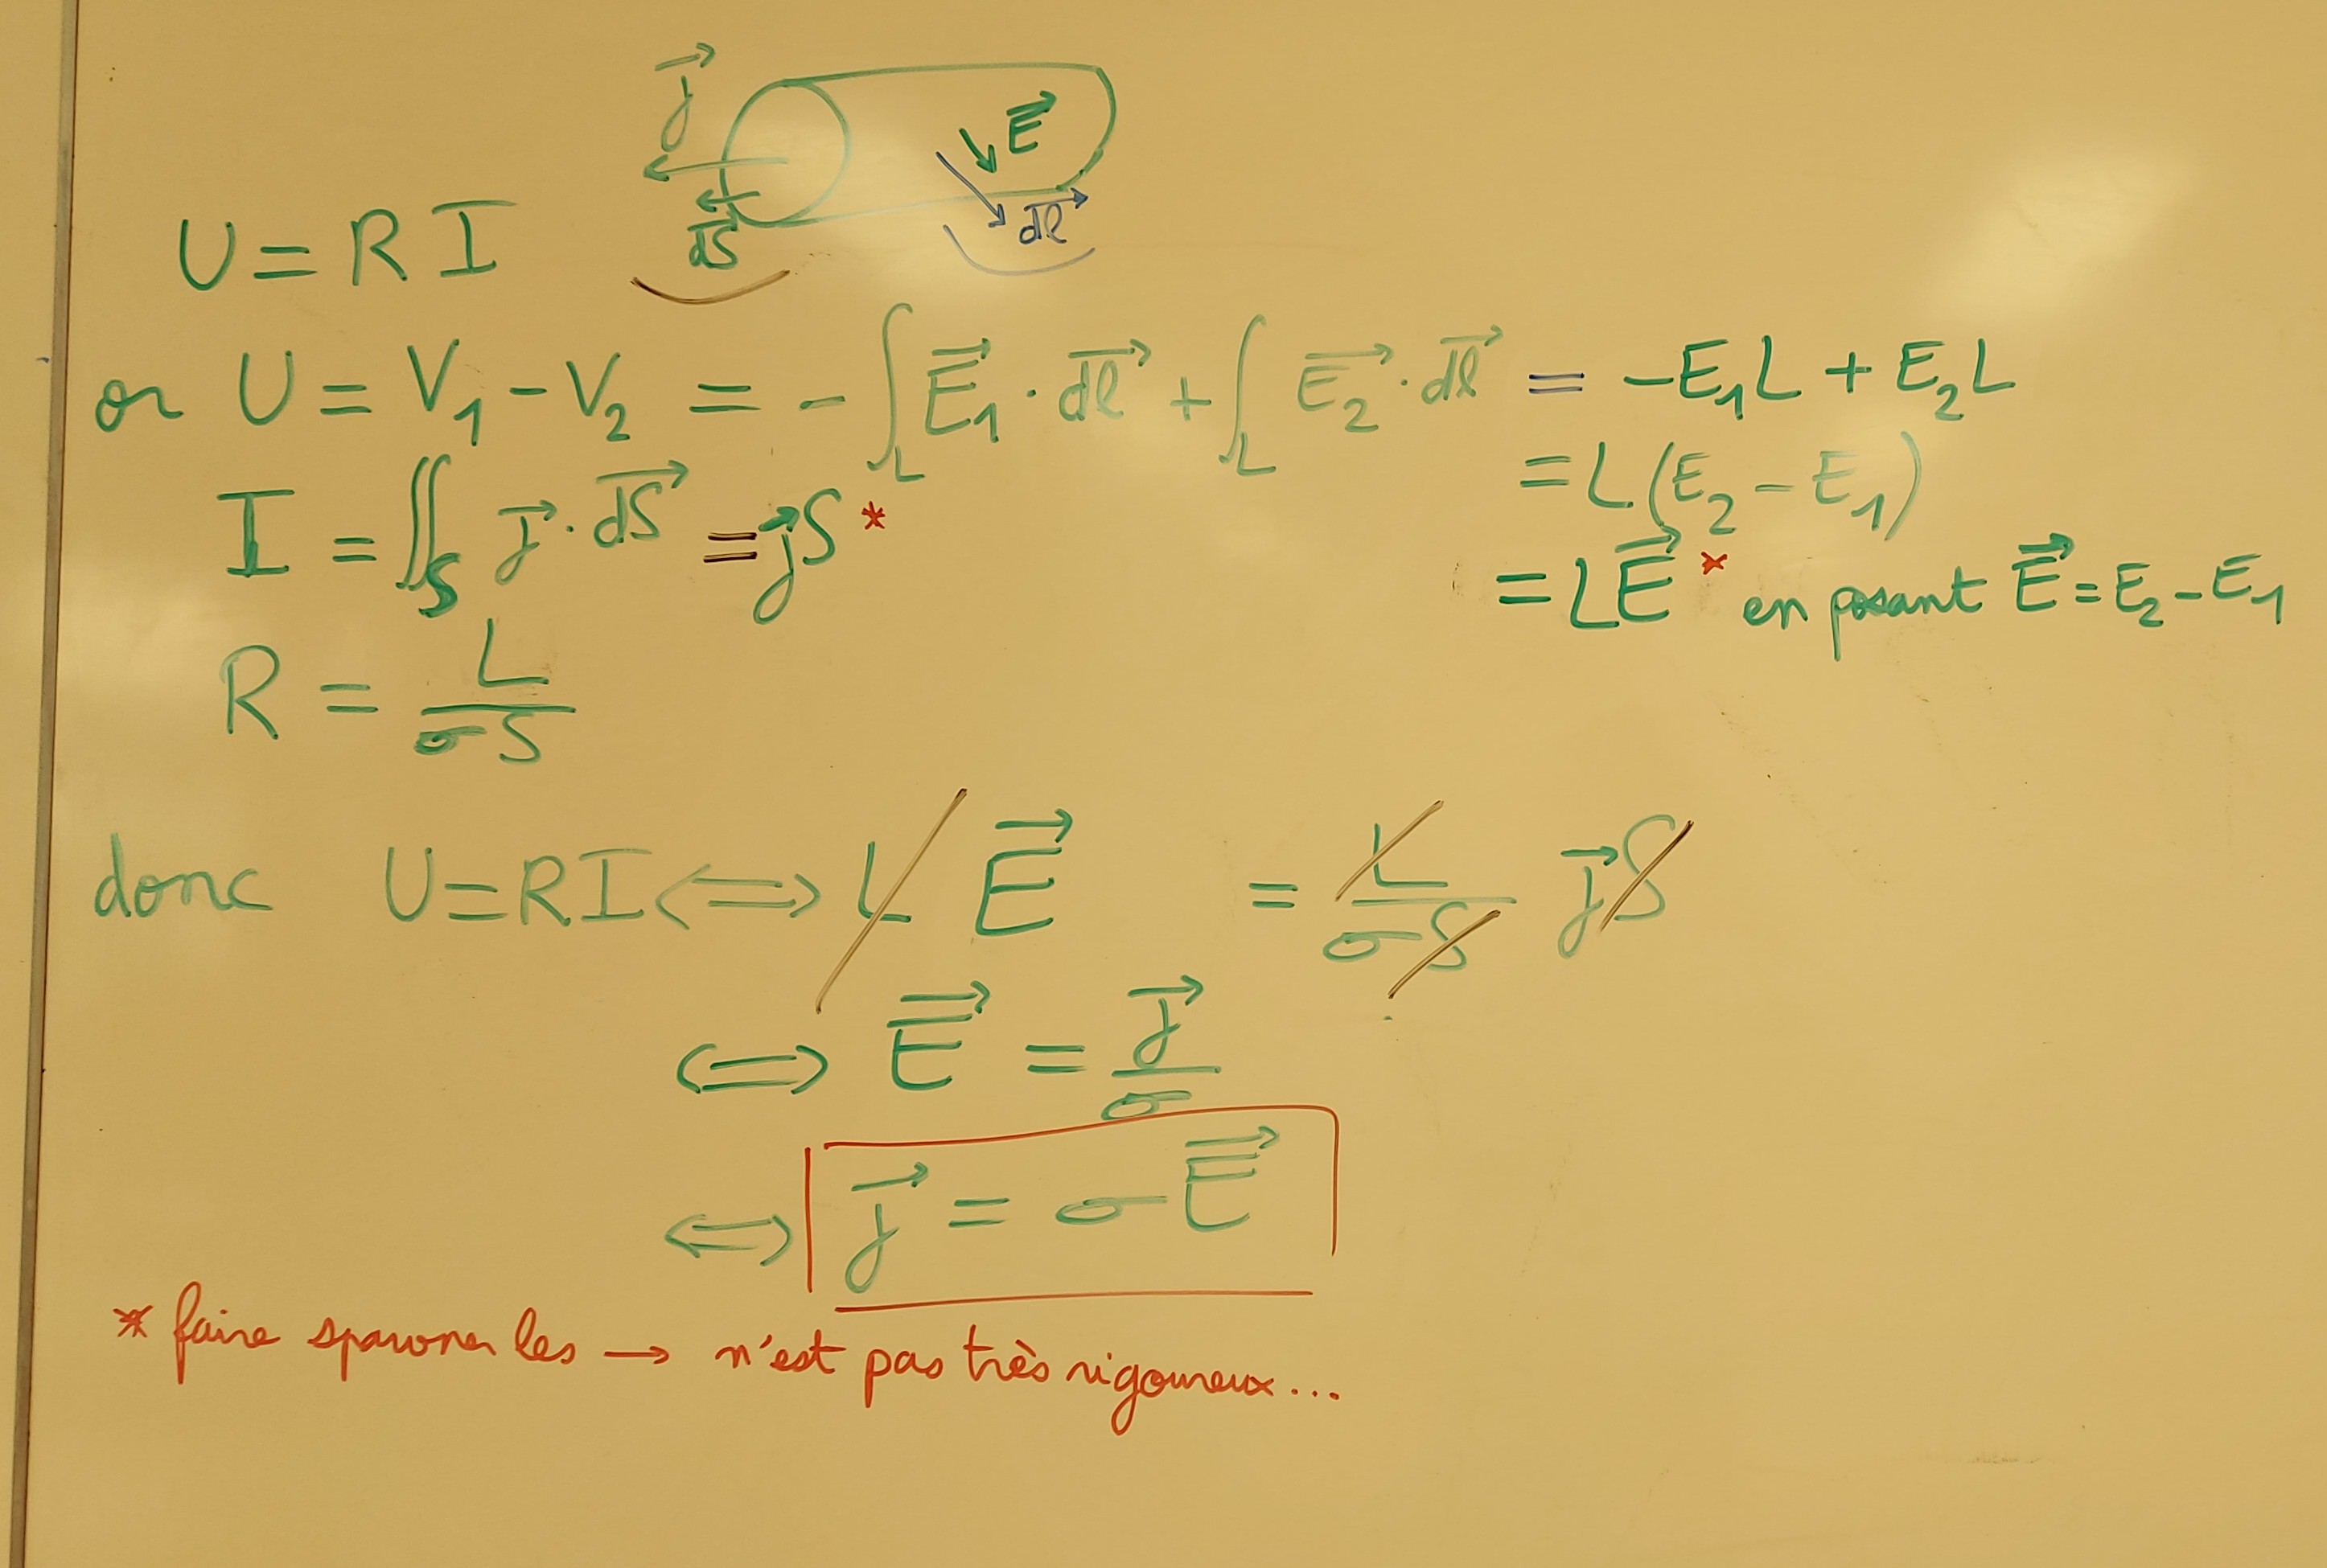 j⃗
E⃗
dS⃗ dl⃗
U = R I
or U = V₁ - V₂ = - ∫_L E₁⃗ · dl⃗ + ∫_L E₂⃗ · dl⃗ = -E₁L + E₂L
= L(E₂ - E₁)
I = ∬_S j⃗ · dS⃗ = j⃗S *
= LE⃗ * en posant E⃗ = E₂ - E₁
R = L/σS
donc U = RI ⟺ L E⃗ = L/σS j⃗S
⟺ E⃗ = j⃗/σ
⟺ j⃗ = σE⃗
* faire spawner les → n'est pas très rigoureux...